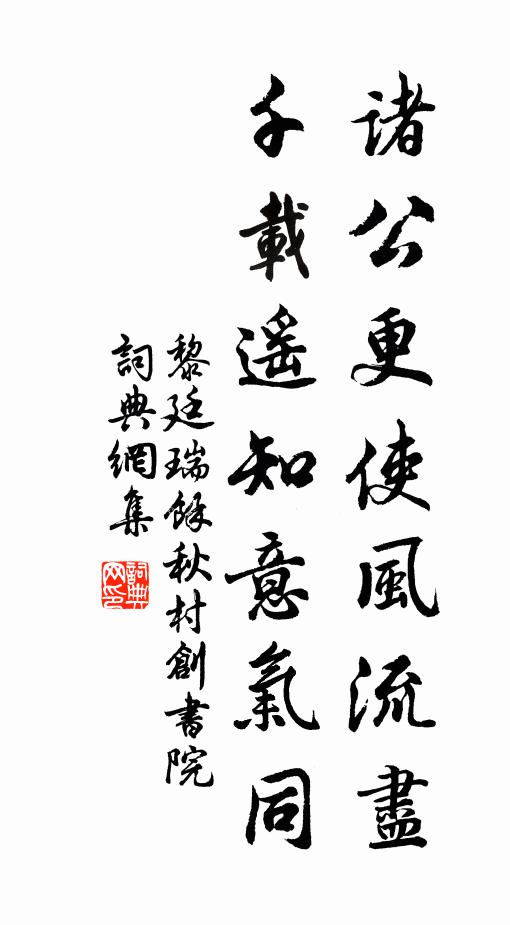 諸公更使風流盡
千載遥知意氣同
黎廷瑞餘秋村創書院
詞典網集
詞典
网印